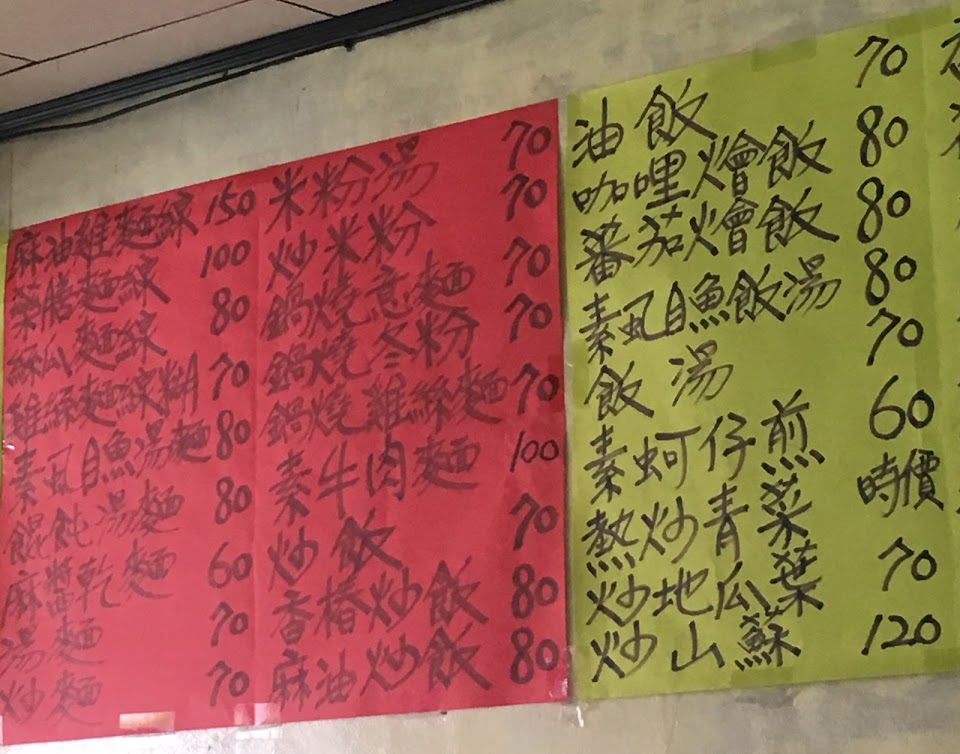 麻油雞麵線 150
藥膳麵線 100
絲瓜麵線 80
雞絲麵線糊 70
素虱目魚湯麵 80
餛飩湯麵 80
麻醬乾麵 60
湯麵 70
炒麵 70
米粉湯 70
炒米粉 70
鍋燒意麵 70
鍋燒冬粉 70
鍋燒雞絲麵 70
素牛肉麵 100
炒飯 70
香椿炒飯 80
麻油炒飯 80
油飯 70
咖哩燴飯 80
蕃茄燴飯 80
素虱目魚飯湯 80
飯湯 70
素蚵仔煎 60
熱炒青菜 時價
炒地瓜葉 70
炒山蘇 120